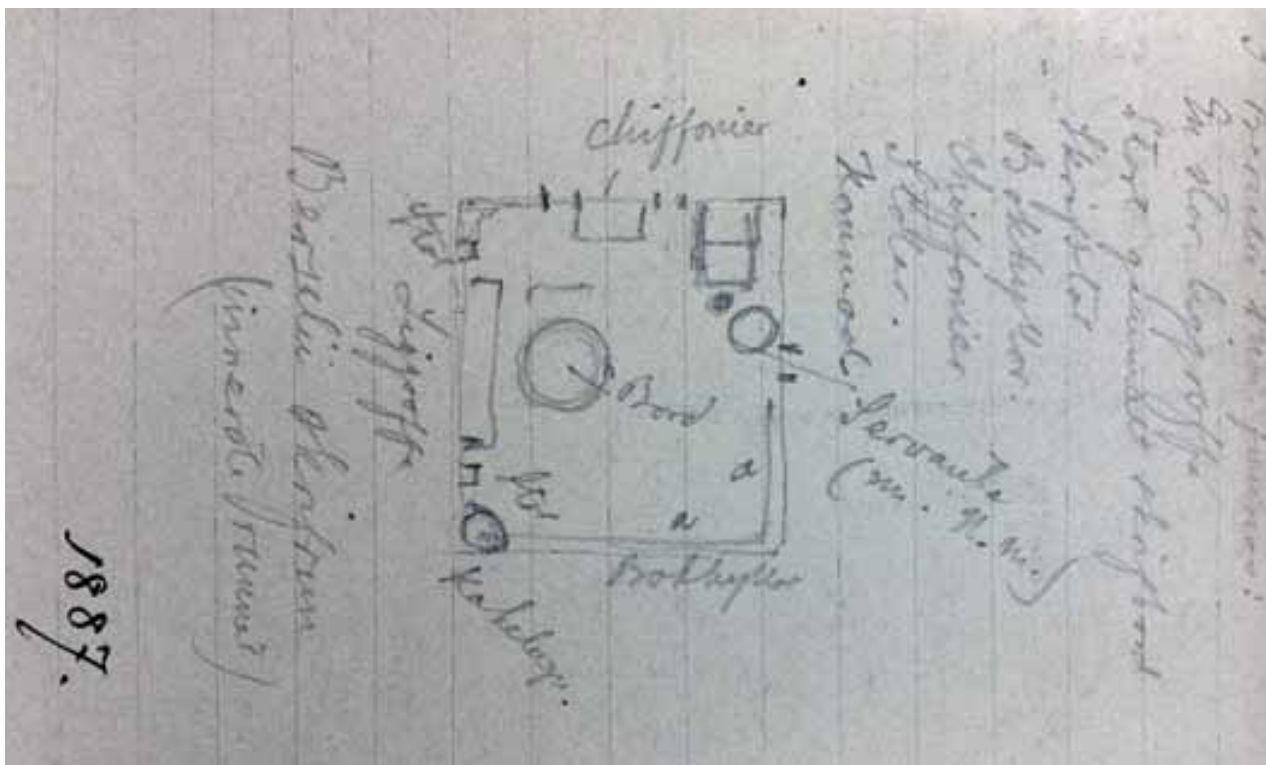 En stor liggsoffa
Stort gammalt skrifbord
Skrifstol
Bokhyllor.
Chiffonier
Stolar.
Kommod, Servante
chiffonier
Bord
a
a
Bokhyllor
Kakelugn.
Liggsoffa
Berzelii skrifrum
(innersta rummet)
1887.